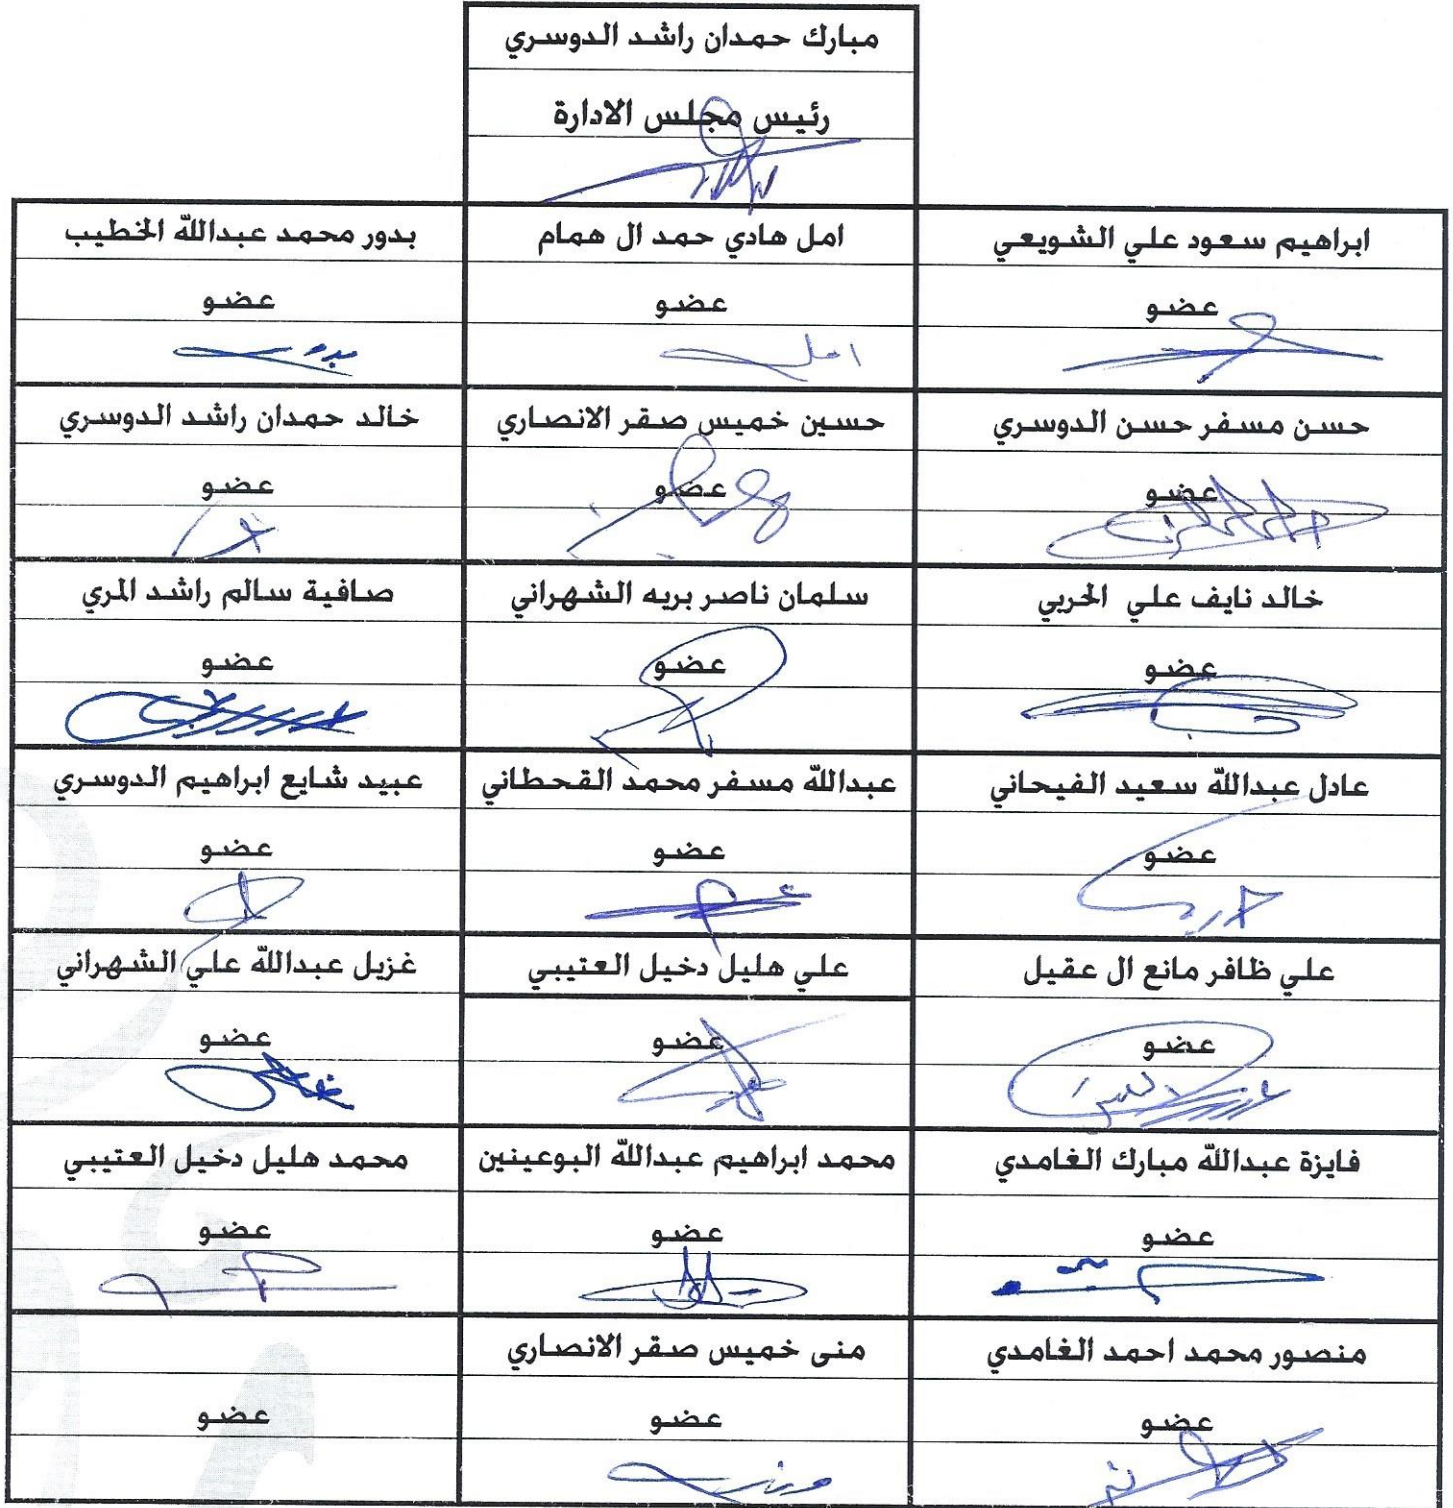 مبارك حمدان راشد الدوسري
رئيس مجلس الادارة
ابراهيم سعود علي الشويعي
امل هادي حمد ال همام
بدور محمد عبدالله الخطيب
عضو
عضو
عضو
امل
بدور
حسن مسفر حسن الدوسري
حسين خميس صقر الانصاري
خالد حمدان راشد الدوسري
عضو
عضو
عضو
خالد نايف علي الحربي
سلمان ناصر بريه الشهراني
صافية سالم راشد المري
عضو
عضو
عضو
عادل عبدالله سعيد الفيحاني
عبدالله مسفر محمد القحطاني
عبيد شايع ابراهيم الدوسري
عضو
عضو
عضو
علي ظافر مانع ال عقيل
علي هليل دخيل العتيبي
غزيل عبدالله علي الشهراني
عضو
عضو
عضو
فايزة عبدالله مبارك الغامدي
محمد ابراهيم عبدالله البوعينين
محمد هليل دخيل العتيبي
عضو
عضو
عضو
منصور محمد احمد الغامدي
منى خميس صقر الانصاري
عضو
عضو
عضو